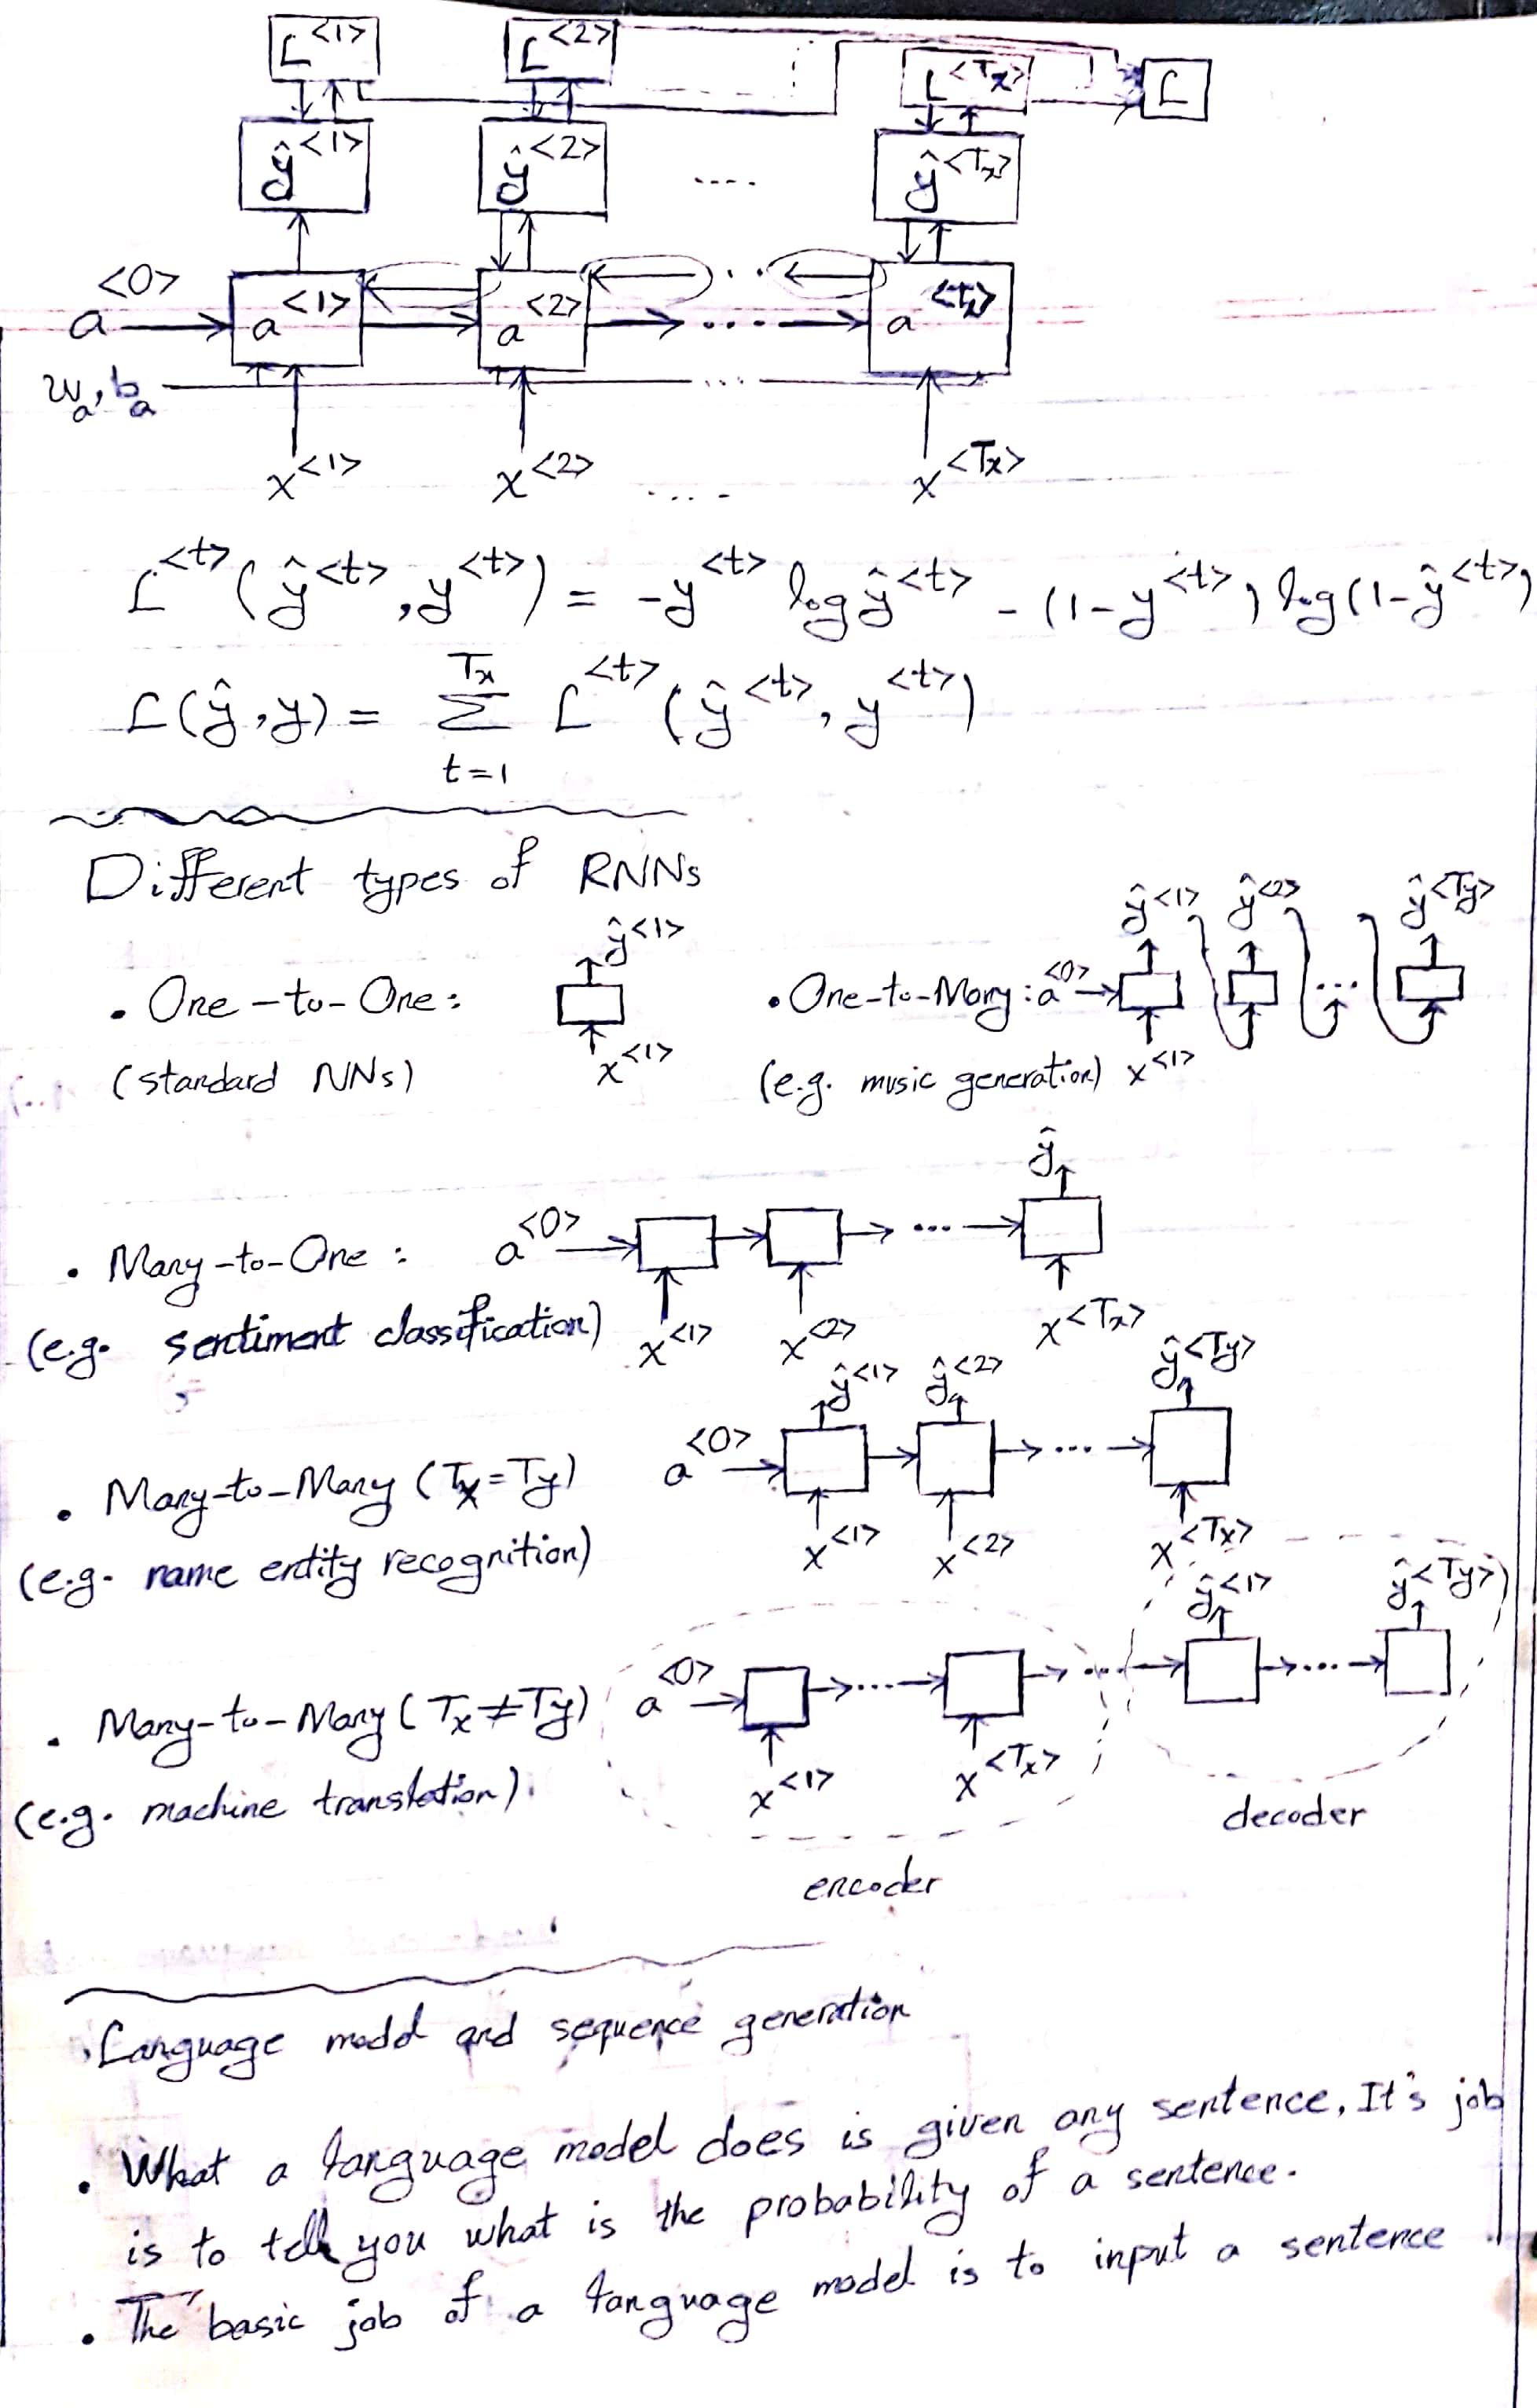 L<1> L<2> L<Tx> L
ŷ<1> ŷ<2> .... ŷ<Tx>
a<0> a<1> a<2> ... a<tx>
wa, ba ...
x<1> x<2> .... x<Tx>
L<t>(ŷ<t>, y<t>) = -y<t> log ŷ<t> - (1-y<t>) log(1-ŷ<t>)
L(ŷ, y) = Σ_{t=1}^{Tx} L<t>(ŷ<t>, y<t>)
Different types of RNNs
ŷ<1> ŷ<1> ŷ<2> ŷ<Ty>
• One-to-One: • One-to-Many: a<0> ...
(standard NNs) x<1> (e.g. music generation) x<1>
ŷ
• Many-to-One: a<0> ...
(e.g. sentiment classification) x<1> x<2> x<Tx>
ŷ<1> ŷ<2> ŷ<Ty>
• Many-to-Many (Tx=Ty) a<0> ...
(e.g. name entity recognition) x<1> x<2> x<Tx>
ŷ<1> ŷ<Ty>
• Many-to-Many (Tx≠Ty) a<0> ... ... ...
(e.g. machine translation). x<1> x<Tx> decoder
encoder
Language model and sequence generation
• What a language model does is given any sentence, It's job
is to tell you what is the probability of a sentence.
• The basic job of a language model is to input a sentence